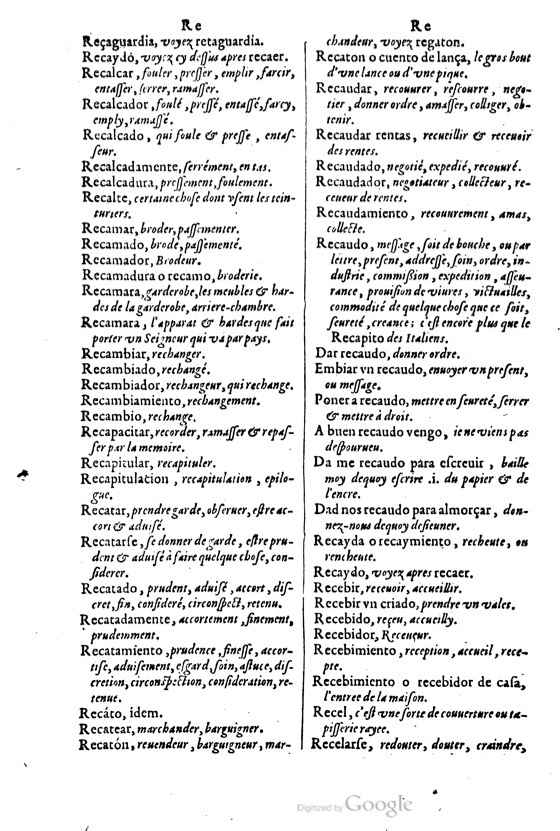 Re
Reçaguardia, voyez retaguardia.
Recaydó, voyez cy dessius apres recaer.
Recalcar, fouler, presser, emplir, farcir,
entasser, serrer, ramasser.
Recalcador, foulé, pressé, entassé, farcy,
emply, ramassé.
Recalcado, qui foule & presse, entas-
seur.
Recalcadamente, serrément, en tas.
Recalcadura, pressement, foulement.
Recalte, certaine chose dont vsent les tein-
turiers.
Recamar, broder, passementer.
Recamado, brodé, passementé.
Recamador, Brodeur.
Recamadura o recamo, broderie.
Recamara, garderobe, les meubles & har-
des de la garderobe, arriere-chambre.
Recamara, l'apparat & hardes que fait
porter vn Seigneur qui va par pays.
Recambiar, rechanger.
Recambiado, rechangé.
Recambiador, rechangeur, qui rechange.
Recambiamiento, rechangement.
Recambio, rechange.
Recapacitar, recorder, ramasser & repas-
ser par la memoire.
Recapitular, recapituler.
Recapitulacion, recapitulation, epilo-
gue.
Recatar, prendre garde, obseruer, estre ac-
cort & aduisé.
Recatarse, se donner de garde, estre pru-
dent & aduisé à faire quelque chose, con-
siderer.
Recatado, prudent, aduisé, accort, dis-
cret, fin, consideré, circonspect, retenu.
Recatadamente, accortement, finement,
prudemment.
Recatamiento, prudence, finesse, accor-
tise, aduisement, esgard, soin, astuce, dis-
cretion, circonspection, consideration, re-
tenue.
Recáto, idem.
Recatear, marchander, barguigner.
Recatón, reuendeur, barguigneur, mar-
Re
chandeur, voyez regaton.
Recaton o cuento de lança, le gros bout
d'vne lance ou d'vne pique.
Recaudar, recouurer, rescourre, nego-
tier, donner ordre, amasser, colliger, ob-
tenir.
Recaudar rentas, recueillir & receuoir
des rentes.
Recaudado, negotié, expedié, recouuré.
Recaudador, negotiateur, collecteur, re-
ceueur de rentes.
Recaudamiento, recouurement, amas,
collecte.
Recaudo, message, soit de bouche, ou par
lettre, present, addresse, soin, ordre, in-
dustrie, commission, expedition, asseu-
rance, prouision de viures, victuailles,
commodité de quelque chose que ce soit,
seureté, creance; c'est encore plus que le
Recapito des Italiens.
Dar recaudo, donner ordre.
Embiar vn recaudo, enuoyer vn present,
ou message.
Poner a recaudo, mettre en seureté, serrer
& mettre à droit.
A buen recaudo vengo, ie ne viens pas
despourueu.
Da me recaudo para escreuir, baille
moy dequoy escrire .i. du papier & de
l'encre.
Dad nos recaudo para almorçar, don-
nez-nous dequoy desieuner.
Recayda o recaymiento, recheute, ou
rencheute.
Recaydo, voyez apres recaer.
Recebir, receuoir, accueillir.
Recebir vn criado, prendre vn valet.
Recebido, reçeu, accueilly.
Recebidor, Receueur.
Recebimiento, reception, accueil, rece-
pte.
Recebimiento o recebidor de casa,
l'entree de la maison.
Recel, c'est vne sorte de couuerture ou ta-
pisserie rayee.
Recelarse, redouter, douter, craindre,
Digitized by Google